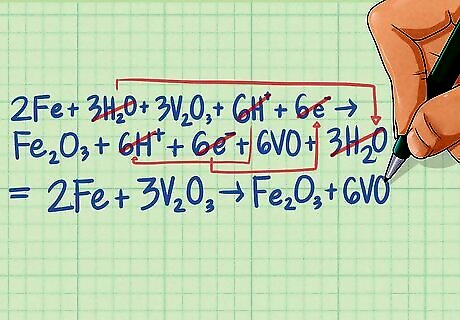 2Fe + 3H₂O + 3V₂O₃ + 6H⁺ + 6e⁻ →
Fe₂O₃ + 6H⁺ + 6e⁻ + 6VO + 3H₂O
= 2Fe + 3V₂O₃ → Fe₂O₃ + 6VO